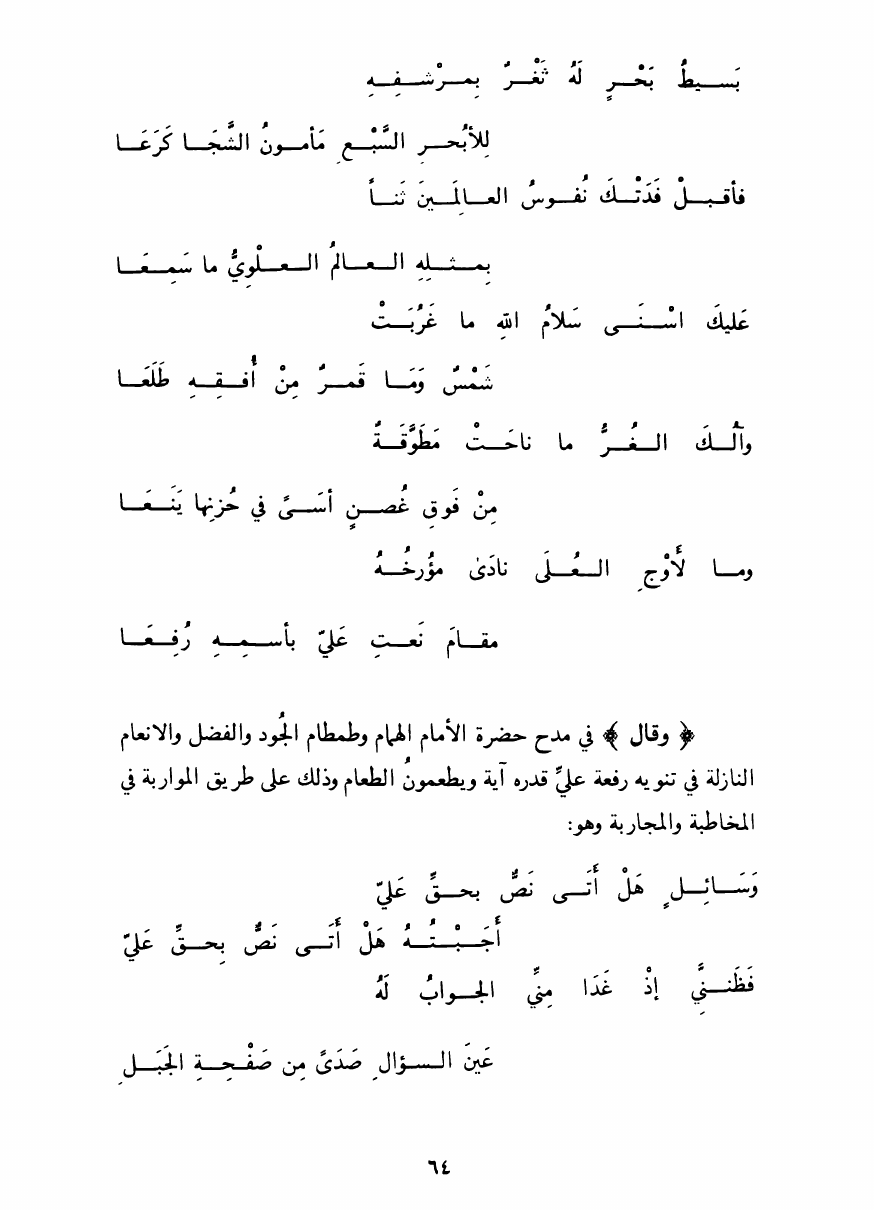 بَسيطُ بَحْرٍ لَهُ ثَغْرٌ بِمرْشفِهِ
لِلأبْحرِ السَّبْعِ مَأمونُ الشَّجَا كَرَعَا
فأقبلْ فَدَتْكَ نُفوسُ العالَمينَ ثَناً
بِمثلِهِ العالمُ العلْويُّ ما سَمِعَا
عَليكَ اسْنَى سَلامُ اللّهِ ما غَرُبَتْ
شَمْسٌ وَمَا قَمرٌ مِنْ أُفقِهِ طَلَعَا
وآلُكَ الغُرُّ ما ناحَتْ مَطَوَّقَةٌ
مِنْ فَوقِ غُصنٍ أسَىً في حُزنِها يَنَعَا
وما لَأوْجِ العُلَى نادَىٰ مؤُرخُهُ
مقامَ نَعتِ عَليّ بأسمِهِ رُفِعَا
﴿ وقال ﴾ في مدح حضرة الأمام الهمام وطمطام الجُود والفضل والانعام
النازلة في تنويه رفعة عليِّ قدره آية ويطعمونُ الطعام وذلك على طريق المواربة في
المخاطبة والمجاربة وهو:
وَسَائلٍ هَلْ أَتَى نَصٌّ بحقِّ عَليّ
أَجَبْتُهُ هَلْ أَتَى نَصٌّ بِحقِّ عَليّ
فَظَننَّي إذْ غَدَا مِنِّي الجوابُ لَهُ
عَينَ السؤالِ صَدَىً مِن صَفْحِةِ الجَبَلِ
٦٤